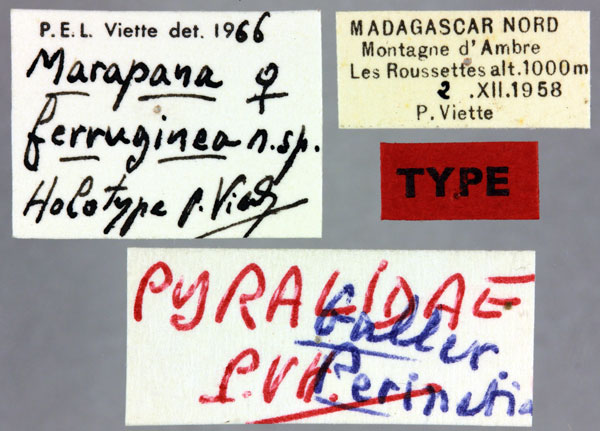 P.E.L. Viette det. 1966
Marapana ♀
ferruginea n.sp.
Holotype P. Viette
MADAGASCAR NORD
Montagne d'Ambre
Les Roussettes alt.1000m
2 .XII.1958
P. Viette
TYPE
PYRALIDAE
Galler
P.V.